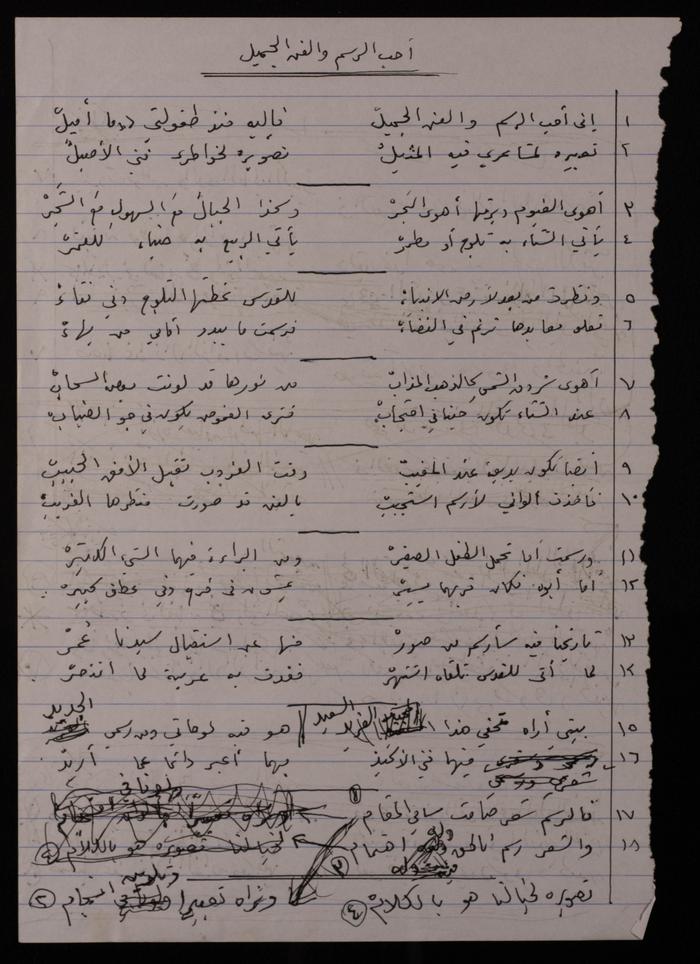 أحب الرسم والفن الجميل
١ إني أحب الرسم والفن الجميل فإليه منذ طفولتي دوما أميل
٢ تعبيره لمشاعري فيه المثيل تصويره لخواطري فني الأصيل
٣ أهوى الغيوم وبرقها أهوى البحر وكذا الجبال مع السهول مع الشجر
٤ يأتي الشتاء به ثلوج أو مطر يأتي الربيع به ضياء للقمر
٥ ونظرت من بعد لأرض الأنبياء للقدس غطتها الثلوج وفي نقاء
٦ تعلو معابدها ترنم في الفضاء فرسمت ما يبدو أمامي من بهاء
٧ أهوى شروق الشمس كالذهب المذاب من نورها قد لونت بعض السحاب
٨ عند الشتاء تكون حينا في احتجاب فترى الغموض يكون في جو الضباب
٩ أيضا تكون بديعة عند المغيب وقت الغروب تقبل الأفق الحبيب
١٠ فأخذت ألواني لأرسم أستجيب بالفن قد صورت منظرها الغريب
١١ ورسمت أما تحمل الطفل الصغير ومن البراءة فيهما الشيء الكثير
١٢ أما أبوه فكان قربهما يسير يمشون في فرح وفي عطف كبير
١٣ تاريخنا فيه سأرسم من صور منها عن استقبال سيدنا عمر
١٤ لما أتى للقدس تلقاه اشتهر فغدت به عربية لما انتصر
١٥ بيتي أراه متحفي هذا السعيد هو فيه لوحاتي ومن رسمي الجديد
١٦ فيها فني الأكيد بهما أعبر دائما عما أريد
١٧ فالرسم شعر صامت سامي المقام ①
١٨ والشعر رسم ناطق اهتمام ③
لخيالنا تصويره هو بالكلام
تصويره لخيالنا هو بالكلام ④ ونراه تعبيرا انسجام ②